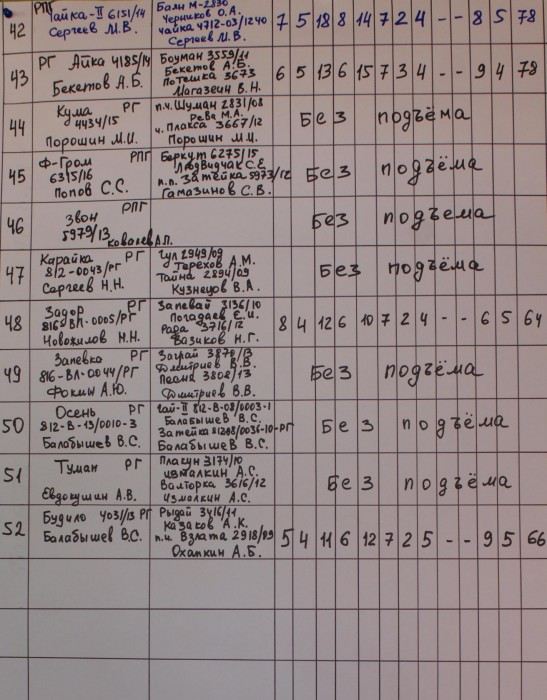 42 РПГ Чайка-II 6151/14 Сергеев М.В. Бали М-2830 Черников О.А. Чайка 4712-03/1240 Сергеев М.В. 7 5 18 8 14 7 2 4 - - 8 5 78
43 РГ Айка 4185/14 Бекетов А.Б. Боуман 3559/11 Бекетов А.Б. Потешка 3673 Магазеин В.Н. 6 5 13 6 15 7 3 4 - - 9 4 78
44 Кума РГ 4434/15 Порошин М.И. п.ч. Шуман 2831/08 Рева М.А. ч. Плакса 3667/12 Порошин М.И. Без подъёма
45 Ф-Гром РПГ 6315/16 Попов С.С. Беркут 6275/15 п.п. Затейка 5973/12 Гамазинов С.В. Без подъёма
46 Звон РПГ 5979/13 Ковалев А.П. Без подъема
47 Карайка РГ 812-0043/РГ Сергеев Н.Н. Гул 2949/09 Терехов А.М. Тайна 2894/09 Кузнецов В.А. Без подъёма
48 Задор РГ 816 ВЛ-0005/РГ Новожилов Н.Н. Запевай 3136/10 Погадаев Е.И. Рада 3716/12 Вазиков Н.Г. 8 4 12 6 10 7 2 4 - - 6 5 64
49 Запевка РГ 816-ВЛ-0044/РГ Фокин А.Ю. 3870/13 Дмитриев В.В. Песня 3808/13 Дмитриев В.В. Без подъёма
50 Осень РГ 812-В-13/0010-3 Балабышев В.С. Чай-II 812-В-08/0003-1 Балабышев В.С. Затейка 81208/0036-10-РГ Балабышев В.С. Без подъёма
51 Туман РГ Евдокушин А.В. Плакун 3174/10 Измалкин А.С. Валторка 3616/12 Измалкин А.С. Без подъёма
52 Будило 4031/13 РГ Балабышев В.С. Рыдай 3416/11 Казаков А.К. п.и. Взлата 2918/09 Охапкин А.Б. 5 4 11 6 12 7 2 5 - - 9 5 66